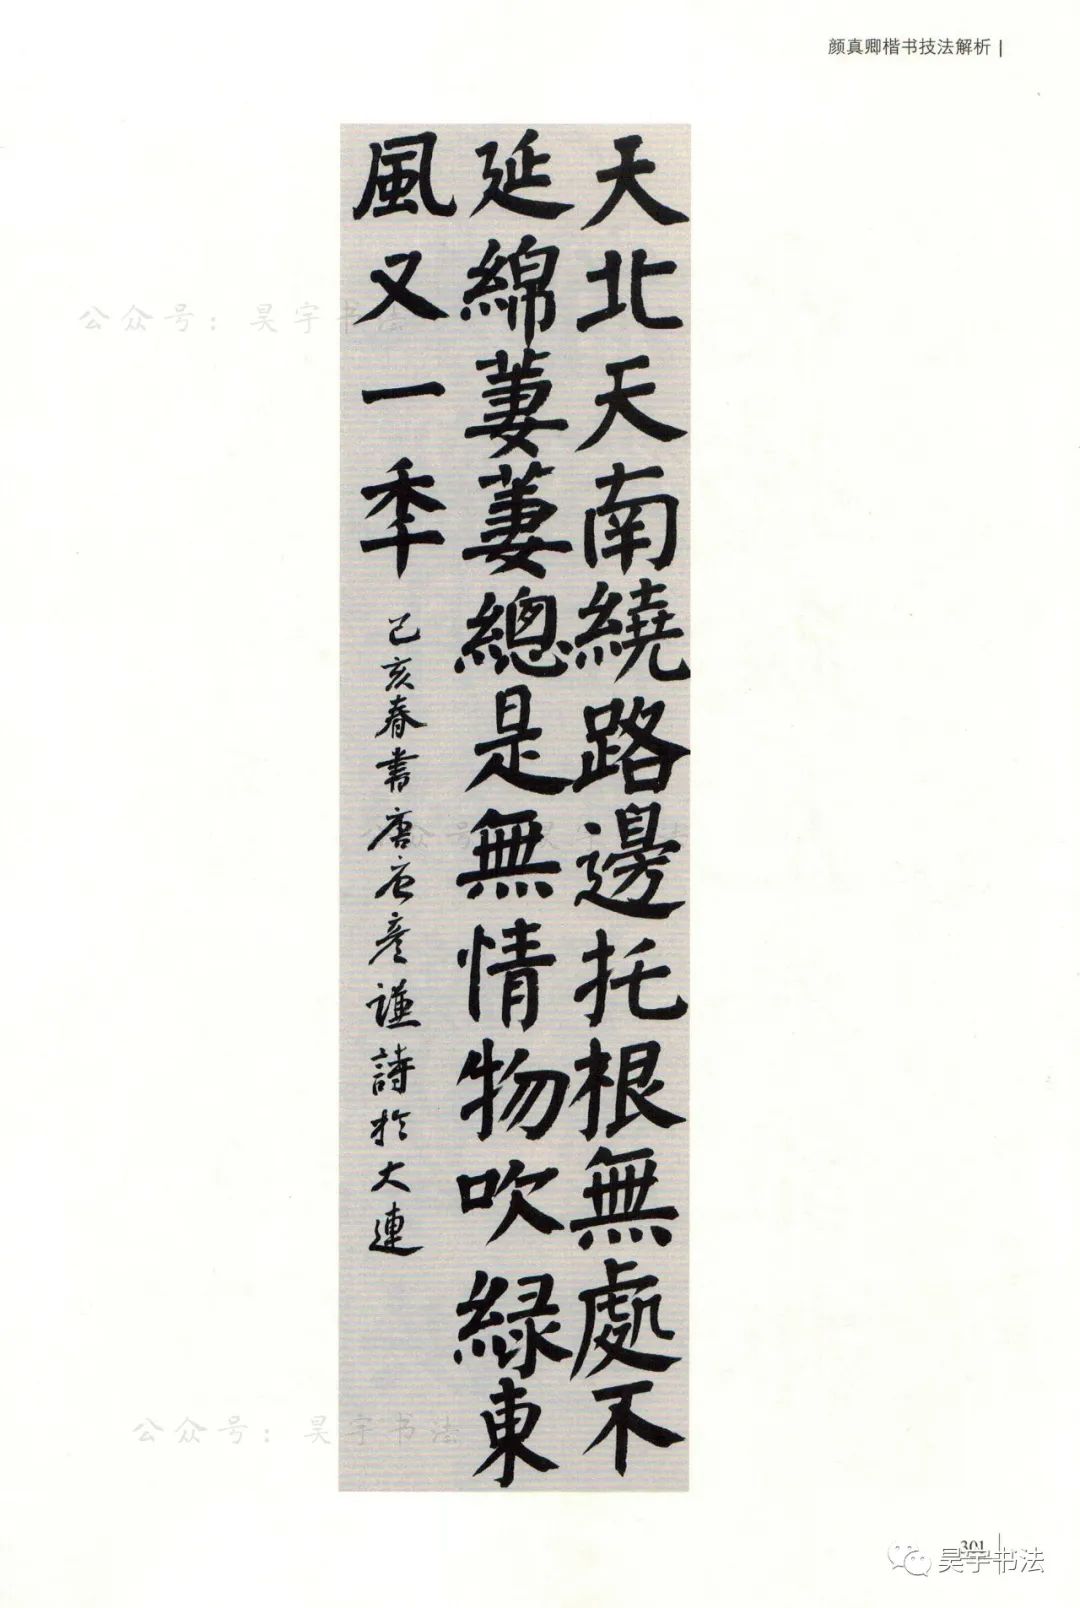 颜真卿楷书技法解析
天北天南繞路邊托根無處不
延綿萋萋總是無情物吹綠東
風又一秊
己亥春書唐唐彥謙詩於大連
公众号：昊宇书法
公众号：昊宇书法
301
昊宇书法